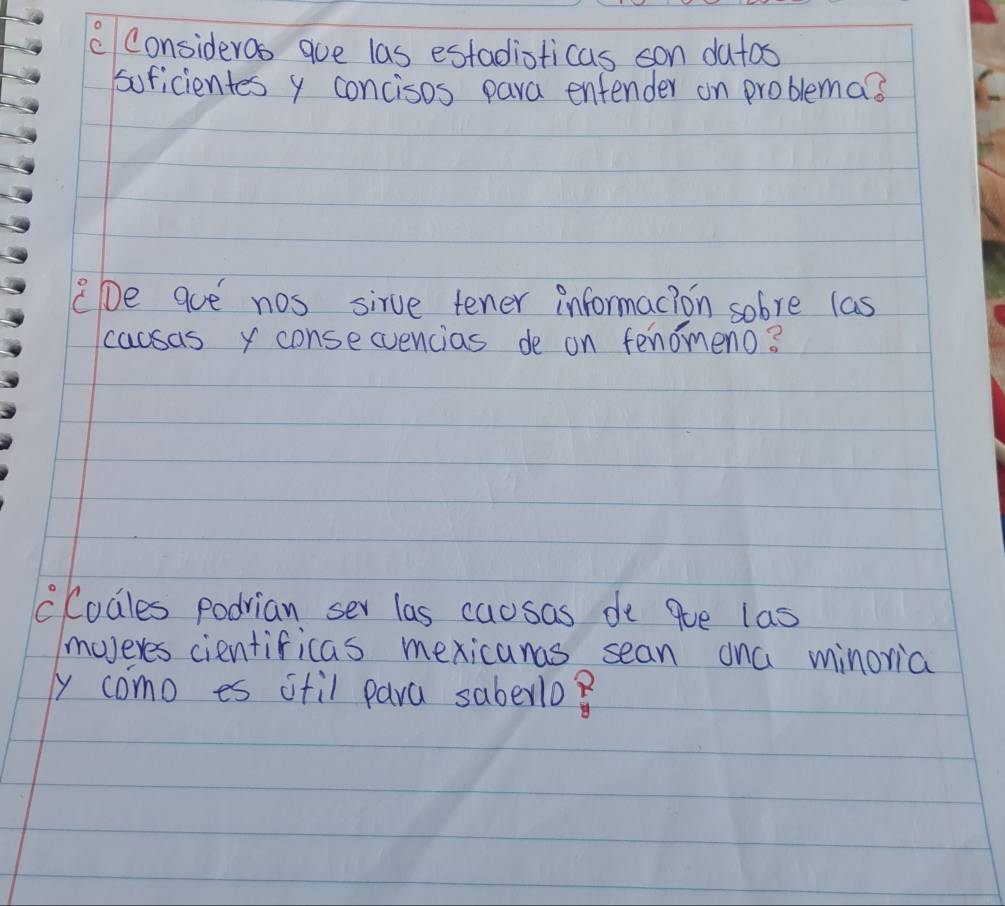 ¿Consideras que las estadisticas son datos
suficientes y concisos para entender un problema?
¿De qué nos sirve tener información sobre las
causas y consecuencias de un fenómeno?
¿Cuáles podrian ser las causas de que las
mujeres cientificas mexicanas sean una minoria
y cómo es útil para saberlo?